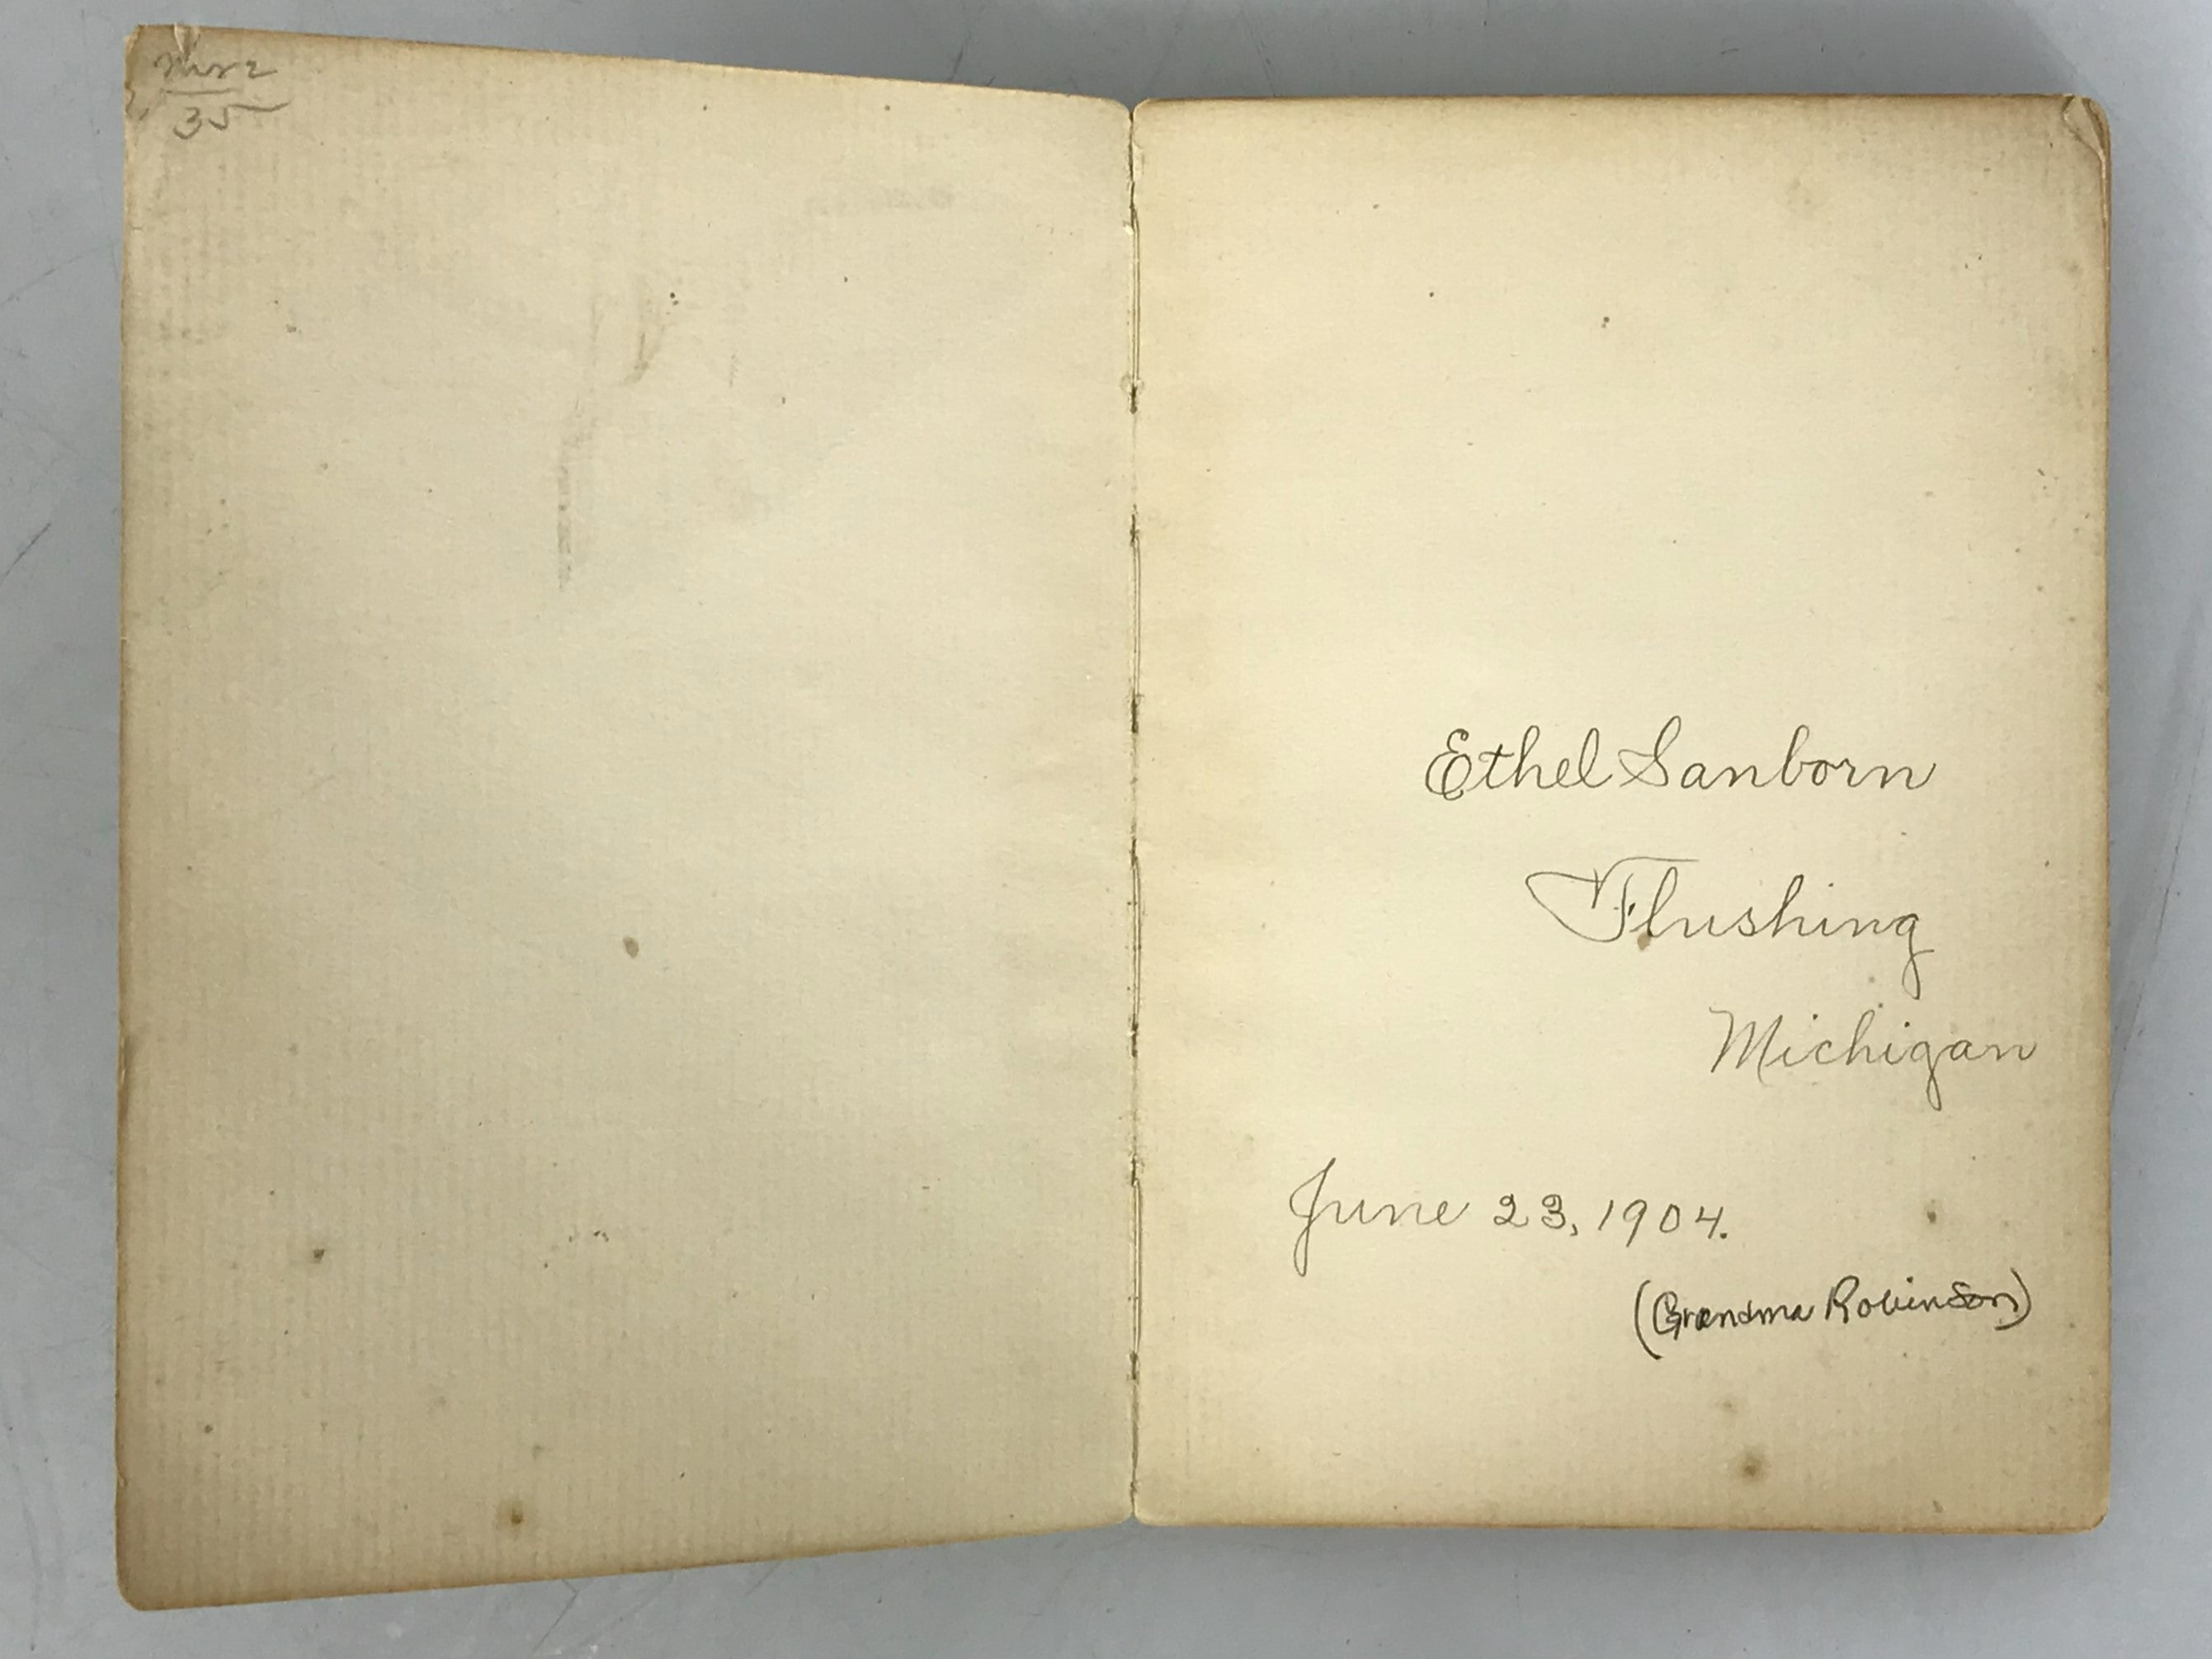 35
Ethel Sanborn
Flushing
Michigan
June 23, 1904.
(Grandma Robinson)